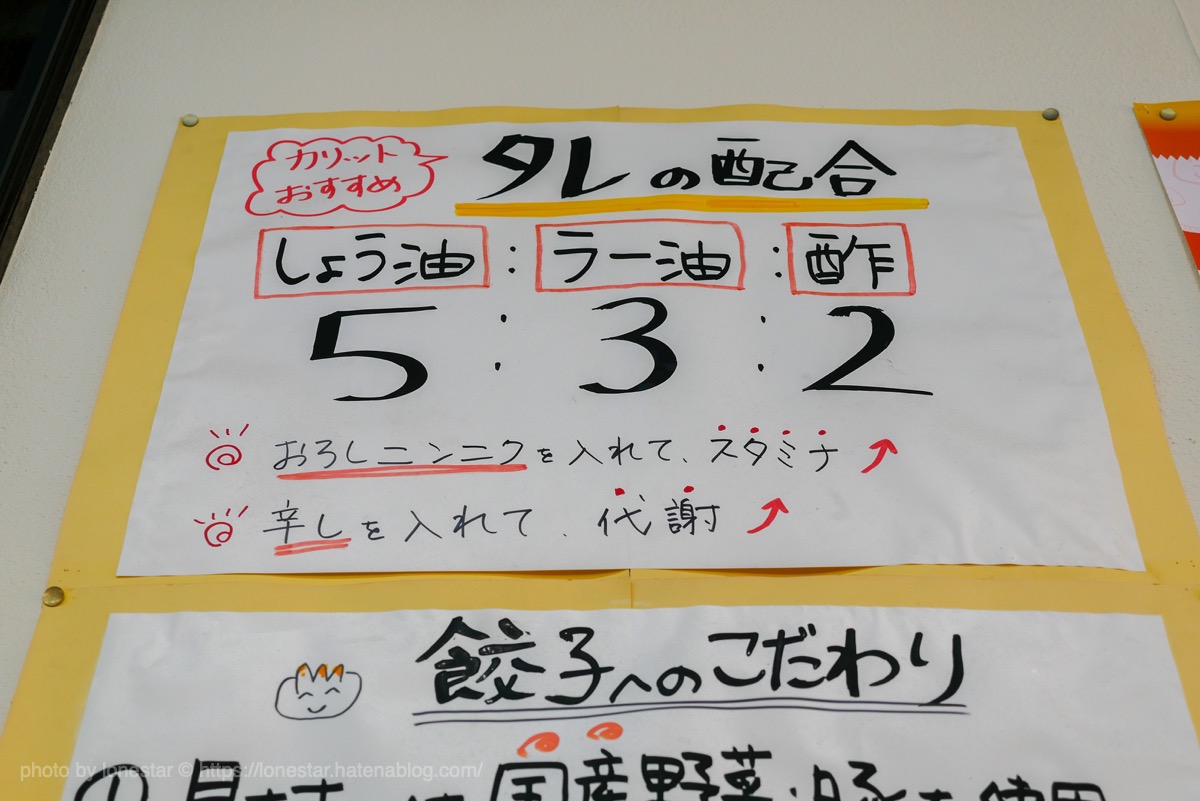 カリット
おすすめ
タレの配合
しょう油:ラー油:酢
5:3:2
おろしニンニクを入れて、スタミナ
辛しを入れて、代謝
餃子へのこだわり
国産野菜・豚
photo by lonestar © https://lonestar.hatenablog.com/